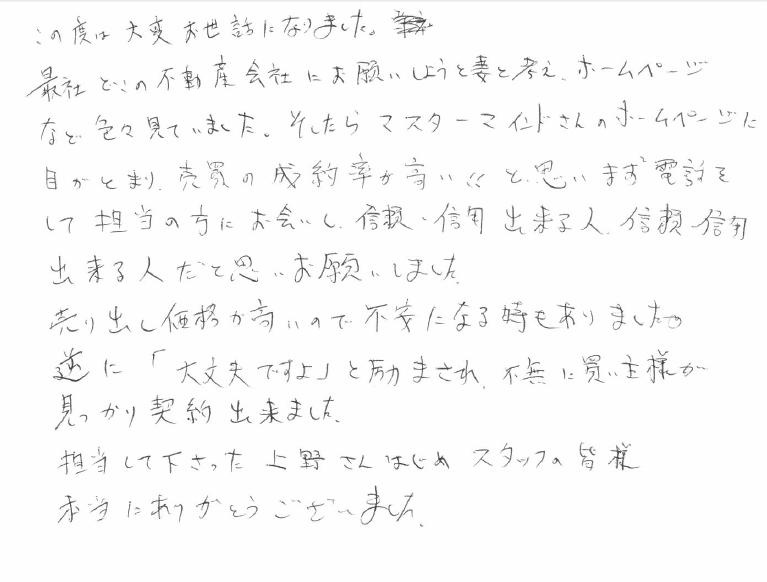 この度は大変お世話になりました。
最社どこの不動産会社にお願いしようと妻と考え、ホームページ
など色々見ていました。そしたらマスターマインドさんのホームページに
目がとまり、売買の成約率が高いくと思いまず電話を
して担当の方にお会いし、信頼・信用出来る人、信頼・信用
出来る人だと思いお願いしました。
売り出し価格が高いので不安になる時もありました。
逆に「大丈夫ですよ」と励まされ、不無に買い主様が
見つかり契約出来ました。
担当して下さった上野さんはじめスタッフの皆様
本当にありがとうございました。